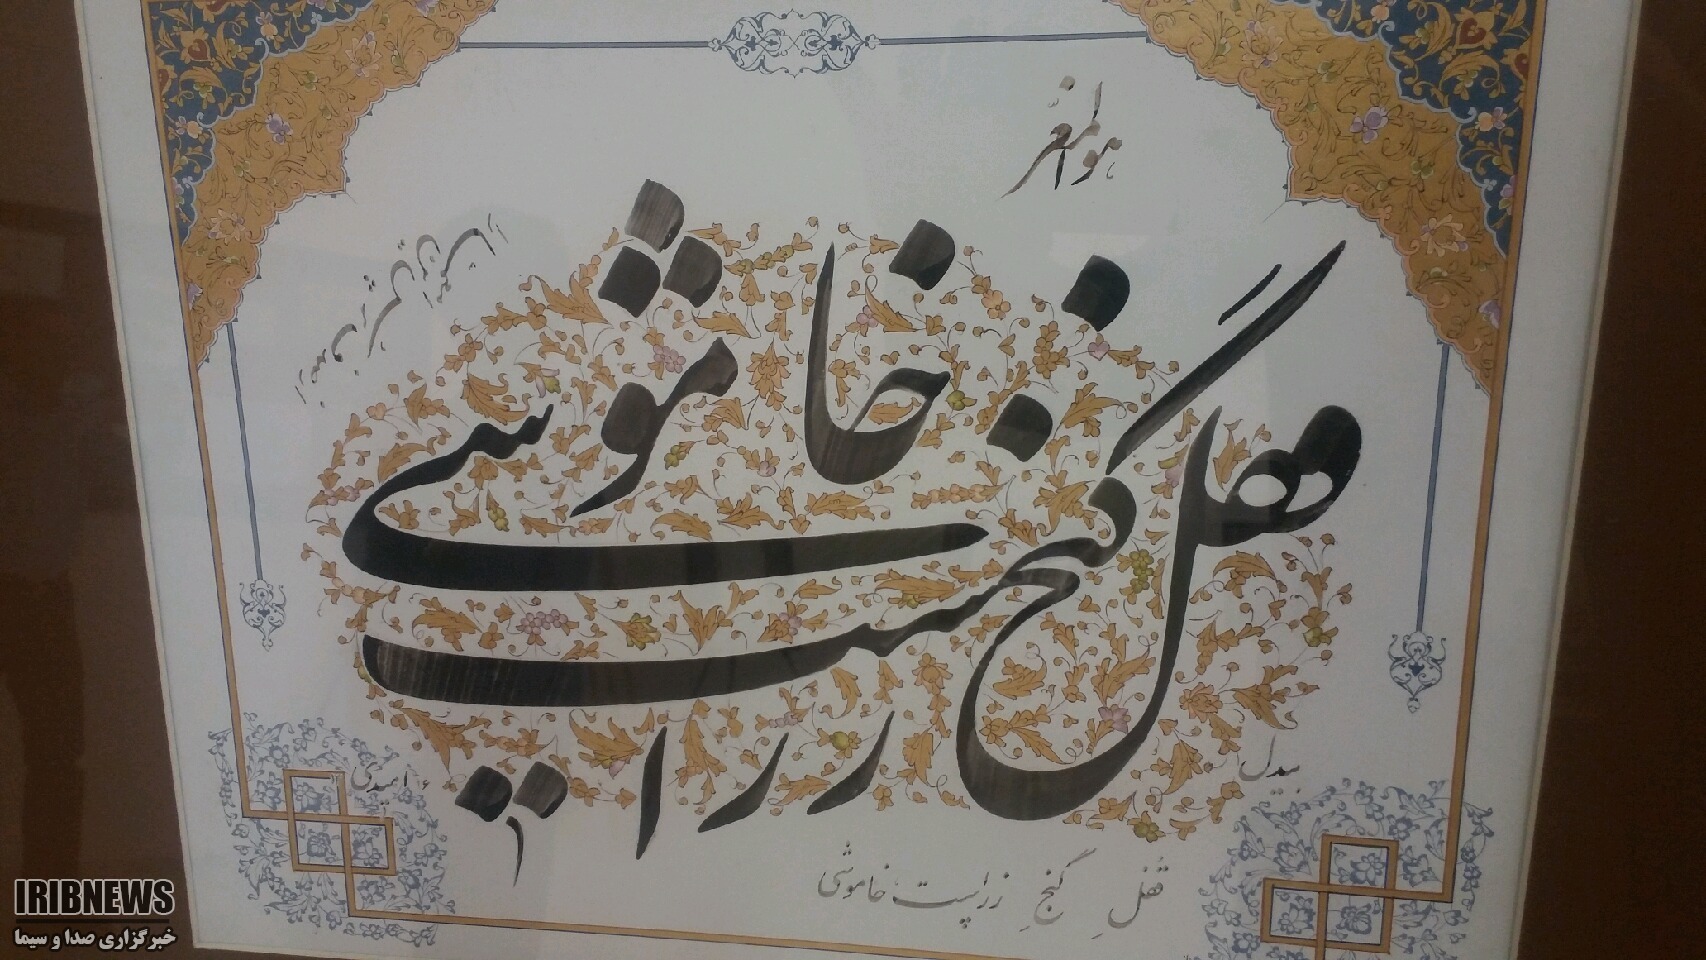 هوالمعز
قفل گنج زر است خاموشی
بیدل
امیدی
قُفلِ گنجِ زراست خاموشی
IRIBNEWS
خبرگزاری صدا و سیما